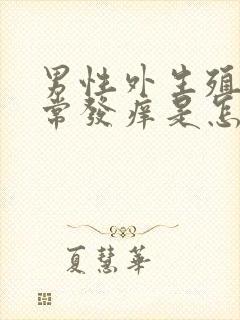 男性外生殖
常發痒是怎
夏慧華